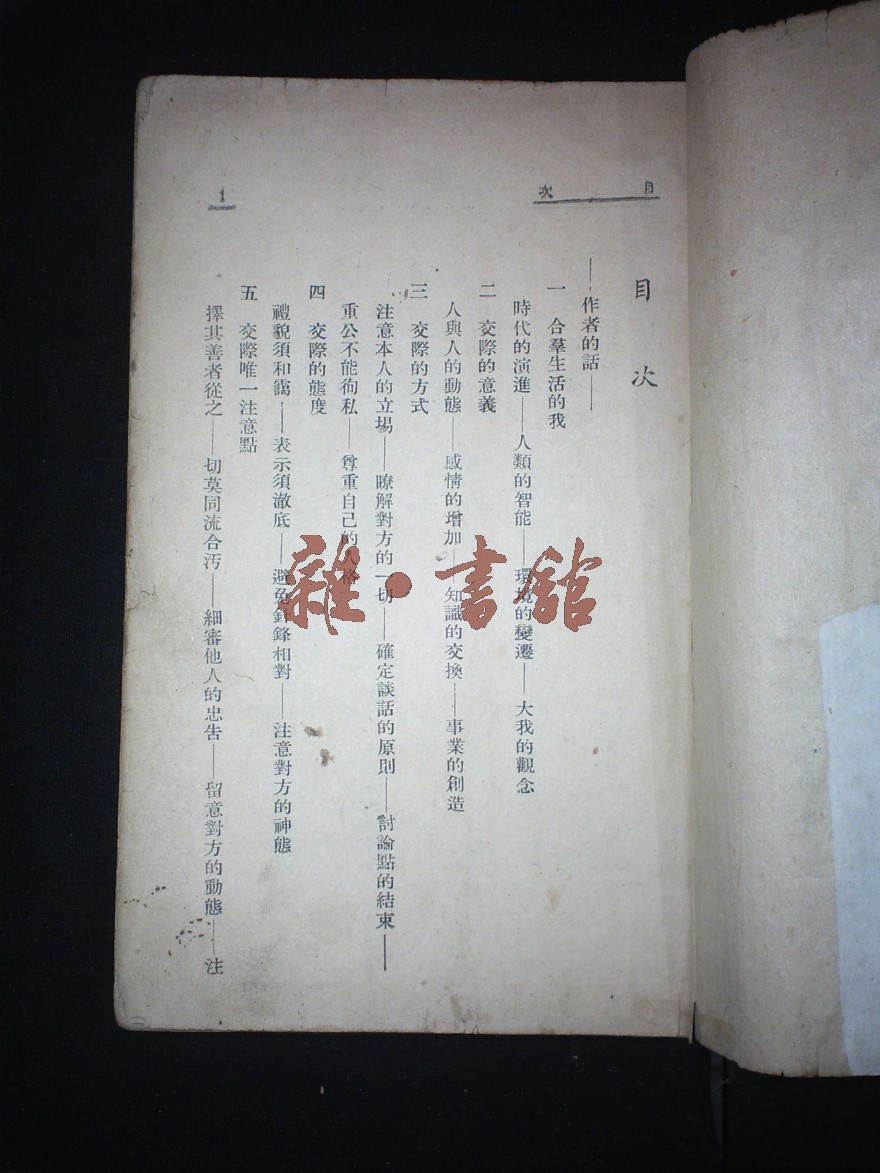 目次
1
目次
——作者的話——
一 合羣生活的我
時代的演進——人類的智能——環境的變遷——大我的觀念
二 交際的意義
人與人的動態——感情的增加——知識的交換——事業的創造
三 交際的方式
注意本人的立場——瞭解對方的一切——確定談話的原則——討論點的結束——
重公不能徇私——尊重自己的人格
四 交際的態度
禮貌須和靄——表示須澈底——避免針鋒相對——注意對方的神態
五 交際唯一注意點
擇其善者從之——切莫同流合汚——細審他人的忠告——留意對方的動態——注
雜·書館